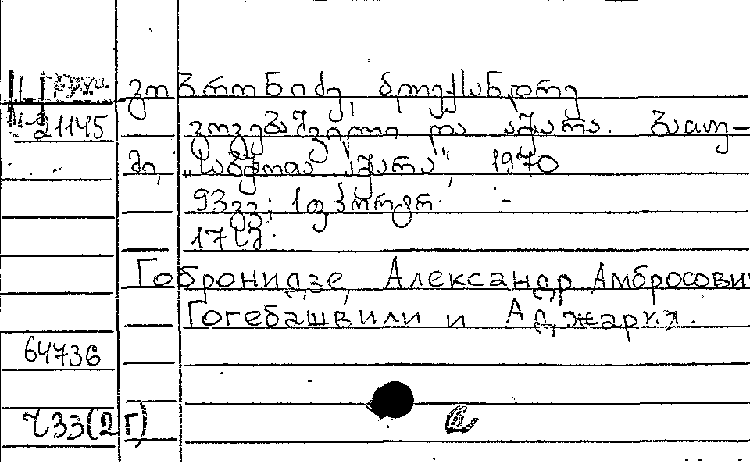 გობრონიძე, ალექსანდრე
II-21145
გოგებაშვილი და აჭარა. ბათუ-
მი, „საბჭოთა აჭარა", 1970
93 გვ; 1 ფ. პორტრ.
Гобронидзе, Александр Амбросович
Гогебашвили и Аджария.
64736
(2Г)